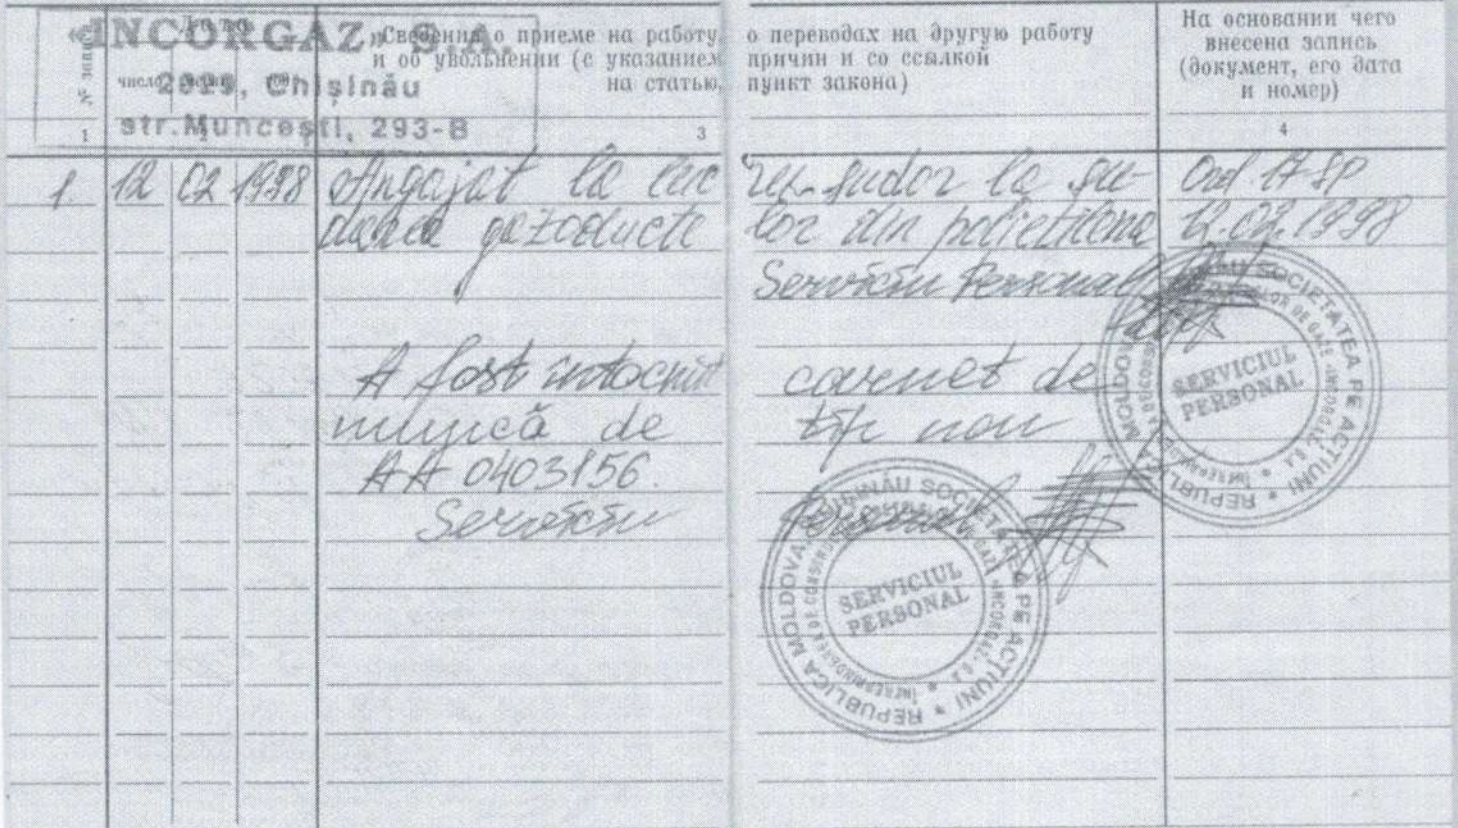 «INCORGAZ" S.A.
2029, Chișinău
str. Muncești, 293-B
№ записи
Дата
число
Сведения о приеме на работу, о переводах на другую работу
и об увольнении (с указанием причин и со ссылкой
на статью, пункт закона)
На основании чего
внесена запись
(документ, его дата
и номер)
1 2 3 4
1. 12 02 1998 Angajat la lucru sudor la su- Ord. 17-SP
darea gazoductelor din polietilenă 12.02.1998
Serviciu Personal
A fost întocmit carnet de
muncă de tip nou
AA 0403156.
Serviciu Personal
REPUBLICA MOLDOVA CHIȘINĂU SOCIETATEA PE ACȚIUNI
ÎNTREPRINDEREA DE CONSTRUCȚIE «INCORGAZ» S.A.
SERVICIUL
PERSONAL
REPUBLICA MOLDOVA CHIȘINĂU SOCIETATEA PE ACȚIUNI
SERVICIUL
PERSONAL